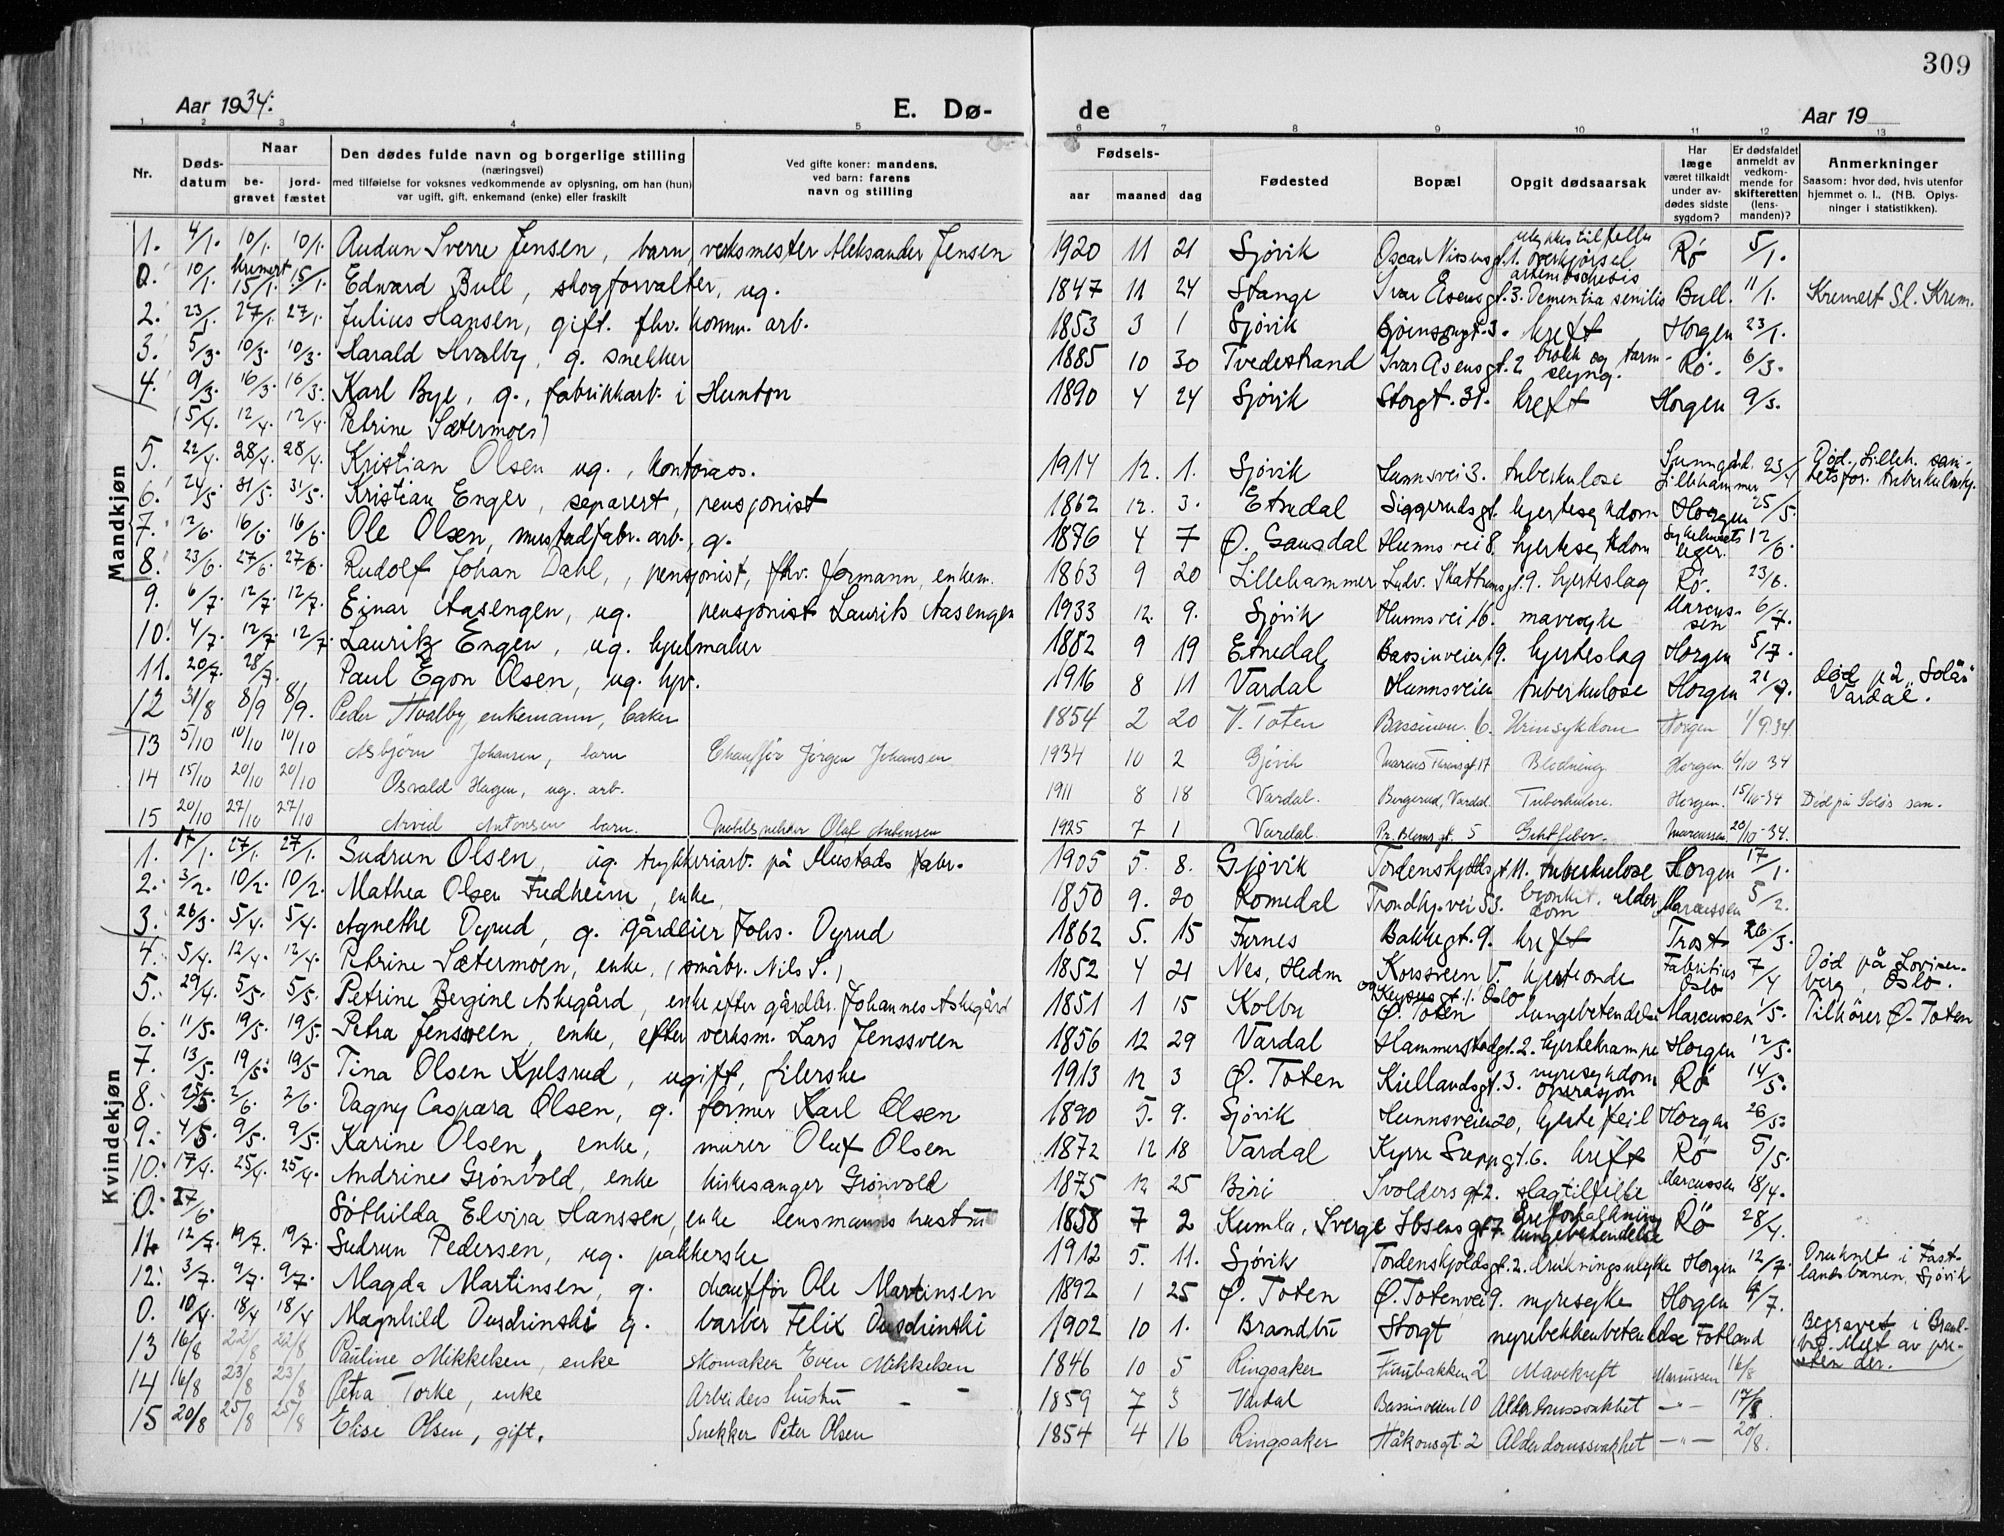 309
Aar 1934. E. Dø- de Aar 19
1 2 3 4 5 6 7 8 9 10 11 12 13
Nr. Døds-datum Naar be-gravet jord-fæstet Den dødes fulde navn og borgerlige stilling (næringsvei) med tilføielse for voksnes vedkommende av oplysning, om han (hun) var ugift, gift, enkemand (enke) eller fraskilt Ved gifte koner: mandens, ved barn: farens navn og stilling Fødsels- aar maaned dag Fødested Bopæl Opgit dødsaarsak Har læge været tilkaldt under av-dødes sidste sygdom? Er dødsfaldet anmeldt av vedkom-mende for skifteretten (lens-manden)? Anmerkninger Saasom: hvor død, hvis utenfor hjemmet o. l.. (NB. Oplys-ninger i statistikken).
Mandkjøn
1. 4/1. 10/1. 10/1. Audun Sverre Jensen, barn verksmester Aleksander Jensen 1920 11 21 Gjøvik Oscar Nissensgt. 1. ulykkestilfelle overkjørsel Rø 5/1.
0. 10/1. Kremert 15/1. 15/1. Edward Bull, skogforvalter, ug. 1847 11 24 Stange Ivar Åsensgt. 3. Dementia senilis Bull. 11/1. Kremert Gl. Krem.
2. 23/1. 27/1. 27/1. Julius Hansen, gift. fhv. komm. arb. 1853 3 1 Gjøvik Bjørnsonsgt. 3. kreft Horgen 23/1.
3. 5/3. 10/3. 10/3. Harald Hvalby, g. snekker 1885 10 30 Tvedestrand Ivar Åsensgt. 2 brokk og tarmslyng. Rø. 6/3.
4. 9/3. 16/3. 16/3. Karl Bye, g., fabrikkarb. i Hunton 1890 4 24 Gjøvik Storgt. 31. kreft Horgen 9/3.
(5/4. 12/4. 12/4. Petrine Sætermoes)
5. 22/4. 28/4. 28/4. Kristian Olsen ug., kontorass. 1914 12. 1. Gjøvik Hunnsvei 3. tuberkulose Lillehammer 23/4 Død. Lilleh. san-
6. 24/5. 31/5. 31/5. Kristian Enger, separert, pensjonist 1862 12. 3. Etnedal Siggerudsgt. hjertesykdom Horgen 25/5.
7. 12/6. 16/6. 16/6. Ole Olsen, mustadfabr. arb., g. 1876 4 7 Ø. Gausdal Hunnsvei 8. hjertesykdom Sykehusets leger. 12/6.
8. 23/6. 27/6. 27/6. Rudolf Johan Dahl,, pensjonist, fhv. formann, enkem. 1863 9 20 Lillehammer Ludv. Skattumsgt. 9. hjerteslag Rø. 23/6.
9. 6/7. 12/7. 12/7. Einar Aasengen, ug. pensjonist Laurits Aasengen 1933 12. 9. Gjøvik Hunnsvei 16. mavesyke Marcussen 6/7.
10. 4/7. 12/7. 12/7. Lauritz Engen, ug. hjulmaker 1882 9 19 Etnedal Bassinveien 19. hjerteslag Horgen 5/7.
11. 20/7. 28/7. Paul Egon Olsen, ug. hjv. 1916 8 11 Vardal Hunnsveien tuberkulose Horgen 21/7. død på "Solås" Vardal.
12 31/8 8/9 8/9. Peder Hvalby, enkemann, baker 1854 2 20 V. Toten Bassinvn. 6. Urinsykdom Horgen 1/9.34
13 5/10 10/10 10/10 Asbjørn Johansen, barn Chauffør Jørgen Johansen 1934 10 2 Gjøvik Marcus Thranesgt. 17 Blødning Horgen. 6/10 34
14 15/10 20/10 20/10 Osvald Hagen, ug. arb. 1911 8 18 Vardal. Bergerud, Vardal. Tuberkulose. Horgen. 15/10-34 Død på Solås san.
15 20/10 27/10 27/10 Arvid Antonsen barn. Møbelsnekker Olaf Antonsen 1925 7 1 Vardal. Pr. Bloms gt. 5 Giktfeber. Marcussen 20/10-34.
Kvindekjøn
1. 17/1. 27/1. 27/1. Gudrun Olsen, ug. trykkeriarb. på Mustads fabr. 1905 5. 8. Gjøvik Tordenskjoldsgt. 11. tuberkulose Horgen 17/1.
2. 3/2. 10/2. 10/2. Mathea Olsen Fudheim, enke, 1850 9. 20 Romedal Trondhj. vei 53. bronkit. alderdom Marcussen 5/2.
3. 26/3. 5/4. 5/4. Agnethe Dyrud, g. gårdeier Johs. Dyrud 1862 5. 15 Furnes Bakkegt. 9. kreft Trost 26/3.
4. 5/4. 12/4. 12/4. Petrine Sætermoen, enke, (småbr. Nils S.) 1852 4 21 Nes, Hedm Korsveien, V. hjerteonde Fabritius Oslo 7/4 Død på Lovisenberg, Oslo.
5. 29/4. 5/5. 5/5. Petrine Bergine Askegård, enke efter gårdbr. Johannes Askegård 1851 1 15 Kolbu Ø. Toten lungebetendelse Marcussen 1/5. Tilhører Ø. Toten
6. 11/5. 19/5. 19/5. Petra Jenssveen, enke, efter verksm. Lars Jenssveen 1856 12 29 Vardal Hammerstadgt. 2. hjertekrampe Horgen 12/5.
7. 13/5. 19/5. 19/5 Tina Olsen Kjelsrud, ugift, filerske 1913 12 3 Ø. Toten Kiellandsgt. 3. nyresykdom operasjon Rø 14/5.
8. 25/5 2/6. 2/6. Dagny Caspara Olsen, g. former Karl Olsen 1890 5. 9. Gjøvik Hunnsveien 20, hjertefeil Horgen 26/5.
9. 4/5 9/5. 9/5. Karine Olsen, enke, murer Oluf Olsen 1872 12 18 Vardal Kyrre Greppgt. 6. kreft Rø 5/5.
10. 17/4. 25/4. 25/4. Andrine Grønvold, enke kirkesanger Grønvold 1875 12 25 Biri Svoldersgt 2. slagtilfelle Marcussen 18/4.
0. 27/6. Gøthilda Elvira Hanssen, enke lensmanns hustru 1858 7 2 Kumla, Sverge Ibsensgt 7. åreforkalkning lungebetendelse Rø 28/4.
11. 12/7. 19/7. 19/7. Gudrun Pedersen, ug. pakkerske 1912 5. 11. Gjøvik Tordenskjoldsgt. 2. drukningsulykke Horgen 12/7. Druknet i Fastlandsbanen, Gjøvik
12. 3/7. 9/7. 9/7. Magda Martinsen, g. chauffør Ole Martinsen 1892 1 25 Ø. Toten Ø. Totenvei 9. nyresyke Horgen 4/7.
0. 10/4. 18/4 18/4 Magnhild Dusdrinski g. barber Felix Dusdrinski 1902 10 1. Brandbu Storgt nyrebekkenbetendelse Fotland Begravet i Brandbu. Melt av presten der.
13 16/8 22/8 22/8 Pauline Mikkelsen, enke skomaker Even Mikkelsen 1846 10 5 Ringsaker Furubakken 2 Mavekreft Marcussen 16/8
14 16/8 23/8 23/8 Petra Torke, enke Arbeiders hustru - 1859 7 3 Vardal Bassinveien 10 Alderdomssvakhet -"- 17/8.
15 20/8 25/8 25/8 Elise Olsen, gift. Snekker Peter Olsen 1854 4 16 Ringsaker Håkonsgt. 2 Alderdomssvakhet -"- 20/8.